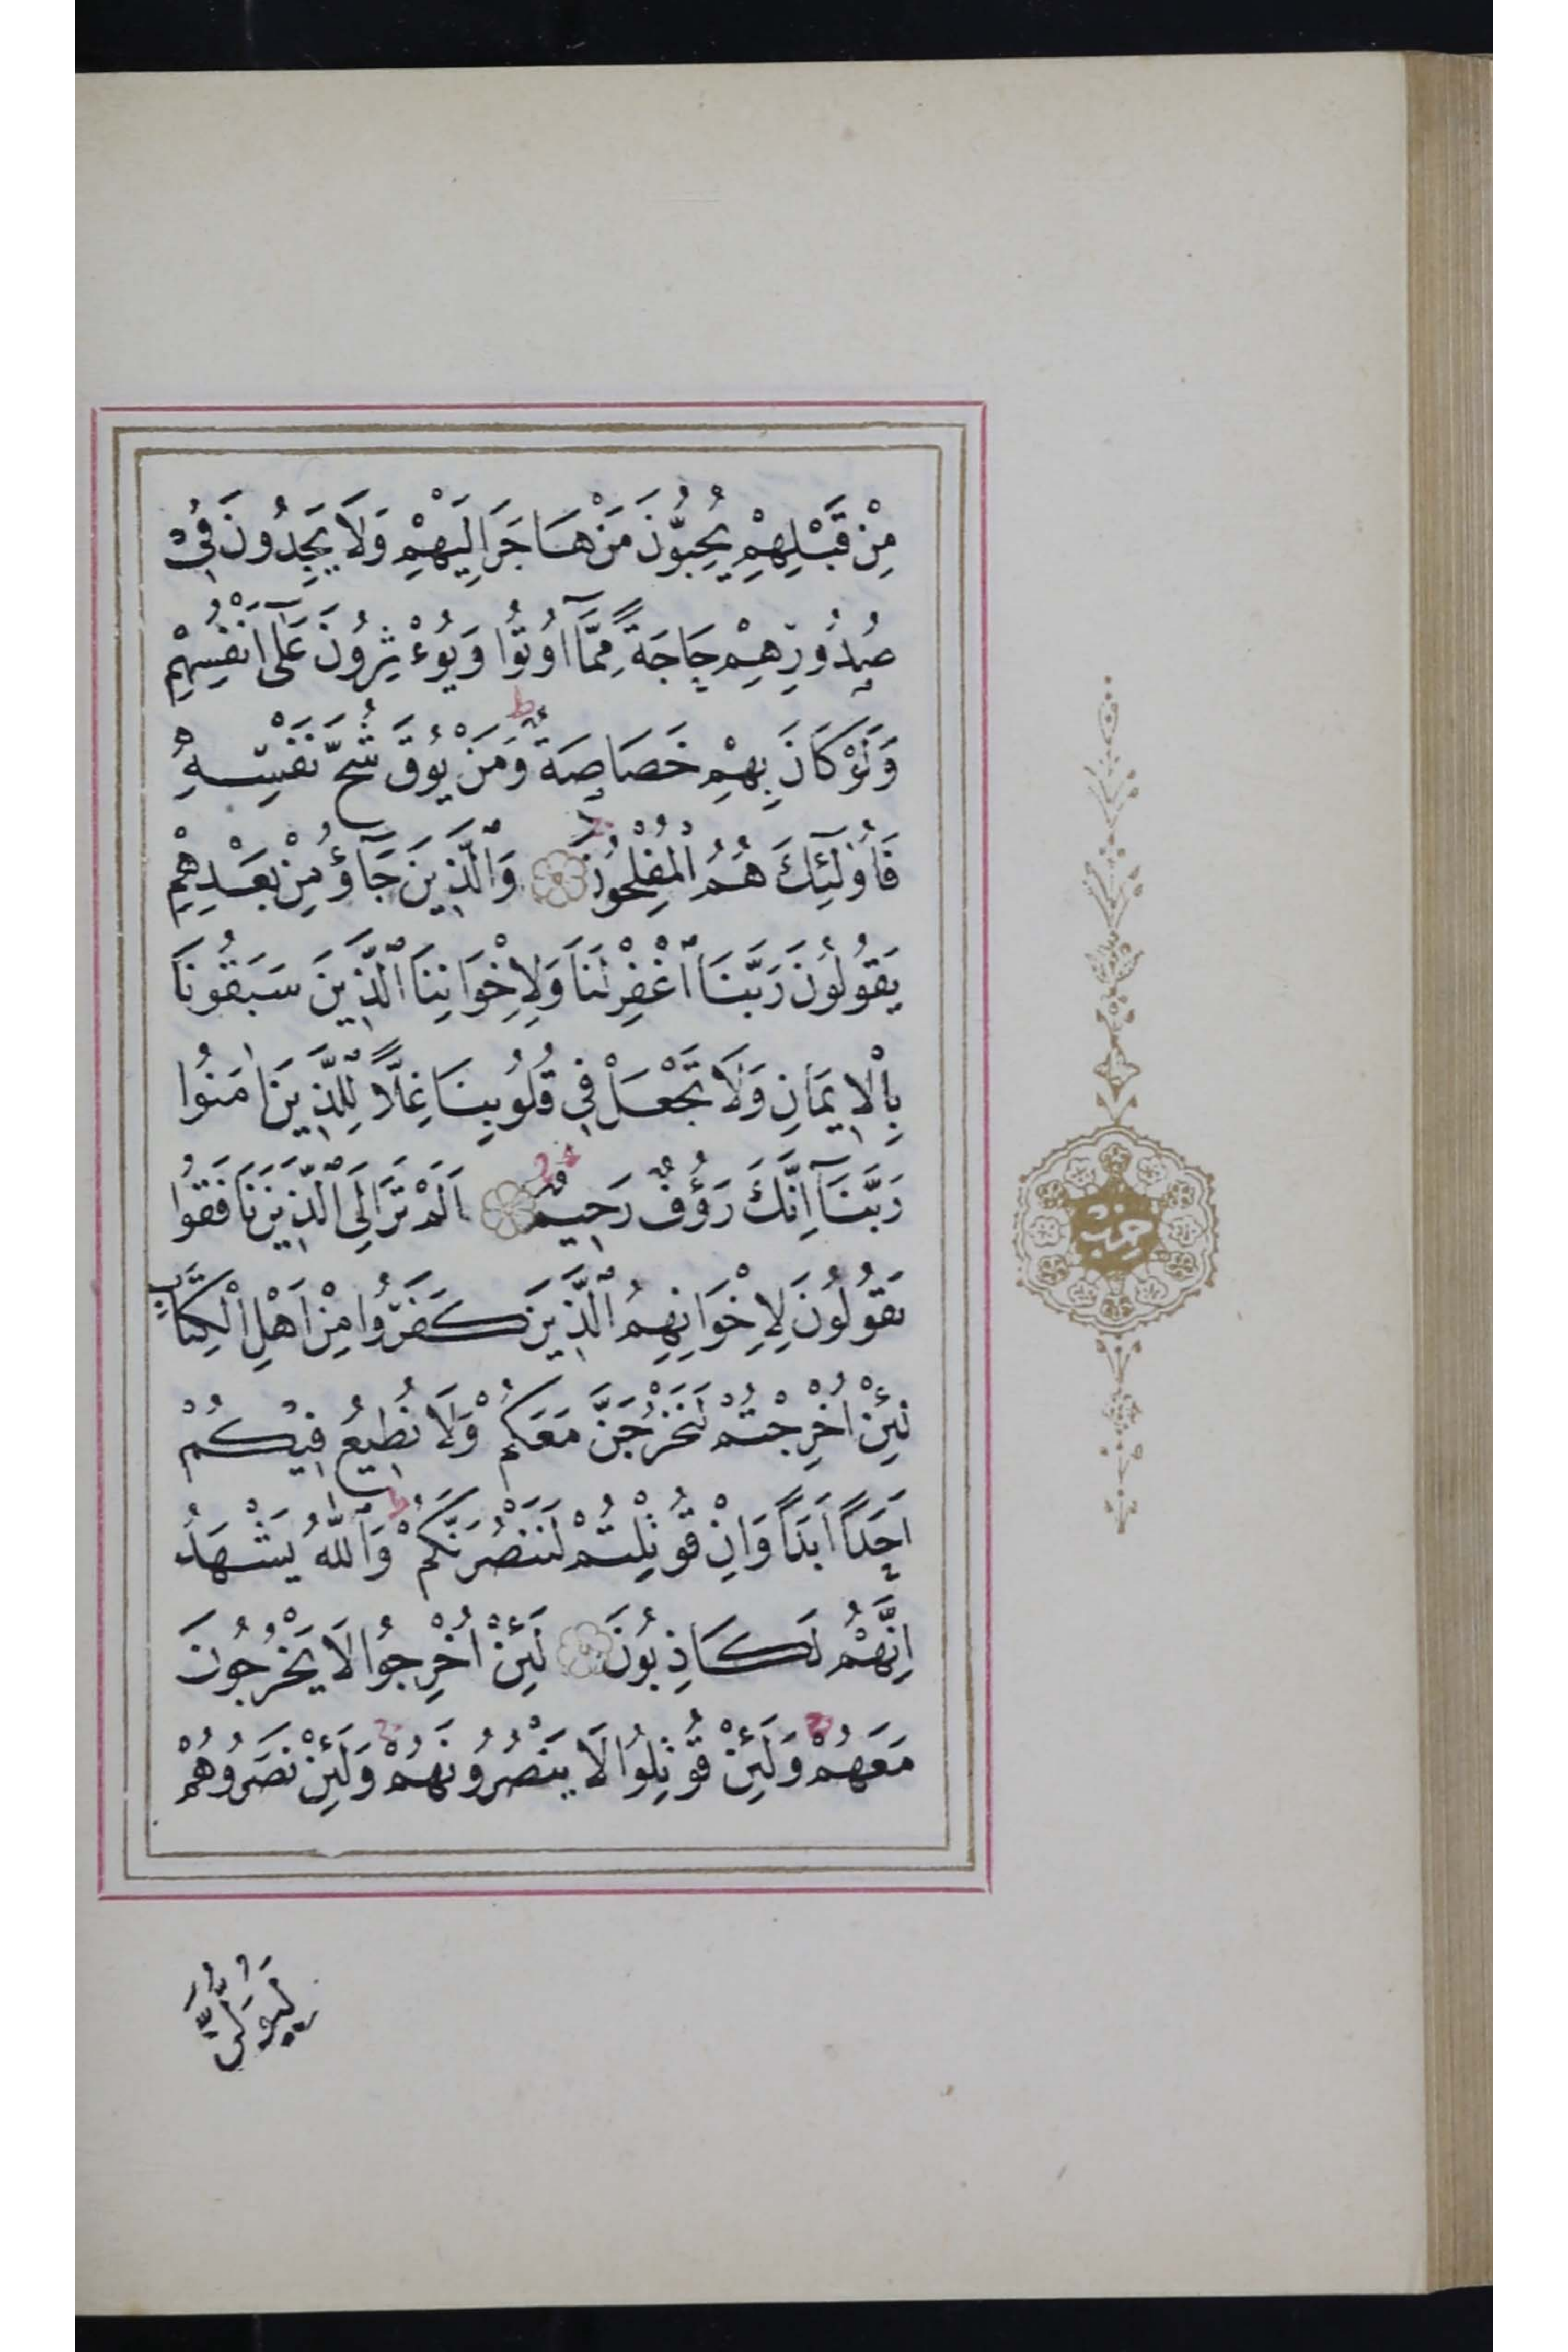 مِنْ قَبْلِهِمْ يُحِبُّونَ مَنْ هَاجَرَ اِلَيْهِمْ وَلَا يَجِدُونَ فِي
صُدُورِهِمْ حَاجَةً مِمَّٓا اُو۫تُوا وَيُوءْثِرُونَ عَلٰٓى اَنْفُسِهِمْ
وَلَوْ كَانَ بِهِمْ خَصَاصَةٌ ط وَمَنْ يُوقَ شُحَّ نَفْسِهِ
فَاُولٰٓئِكَ هُمُ الْمُفْلِحُونَ وَالَّذِينَ جَآؤُ مِنْ بَعْدِهِمْ
يَقُولُونَ رَبَّنَا اغْفِرْ لَنَا وَلِاِخْوَانِنَا الَّذِينَ سَبَقُونَا
بِالْاِيمَانِ وَلَا تَجْعَلْ فِي قُلُوبِنَا غِلًّا لِلَّذِينَ اٰمَنُوا
رَبَّنَٓا اِنَّكَ رَؤُفٌ رَحِيمٌ اَلَمْ تَرَ اِلَى الَّذِينَ نَافَقُوا
يَقُولُونَ لِاِخْوَانِهِمُ الَّذِينَ كَفَرُوا مِنْ اَهْلِ الْكِتَابِ
لَئِنْ اُخْرِجْتُمْ لَنَخْرُجَنَّ مَعَكُمْ وَلَا نُطِيعُ فِيكُمْ
اَحَدًا اَبَدًا وَاِنْ قُوتِلْتُمْ لَنَنْصُرَنَّكُمْ ط وَاللّٰهُ يَشْهَدُ
اِنَّهُمْ لَكَاذِبُونَ لَئِنْ اُخْرِجُوا لَا يَخْرُجُونَ
مَعَهُمْ ج وَلَئِنْ قُوتِلُوا لَا يَنْصُرُونَهُمْ ج وَلَئِنْ نَصَرُوهُمْ
لَيُوَلُّنَّ
حزب